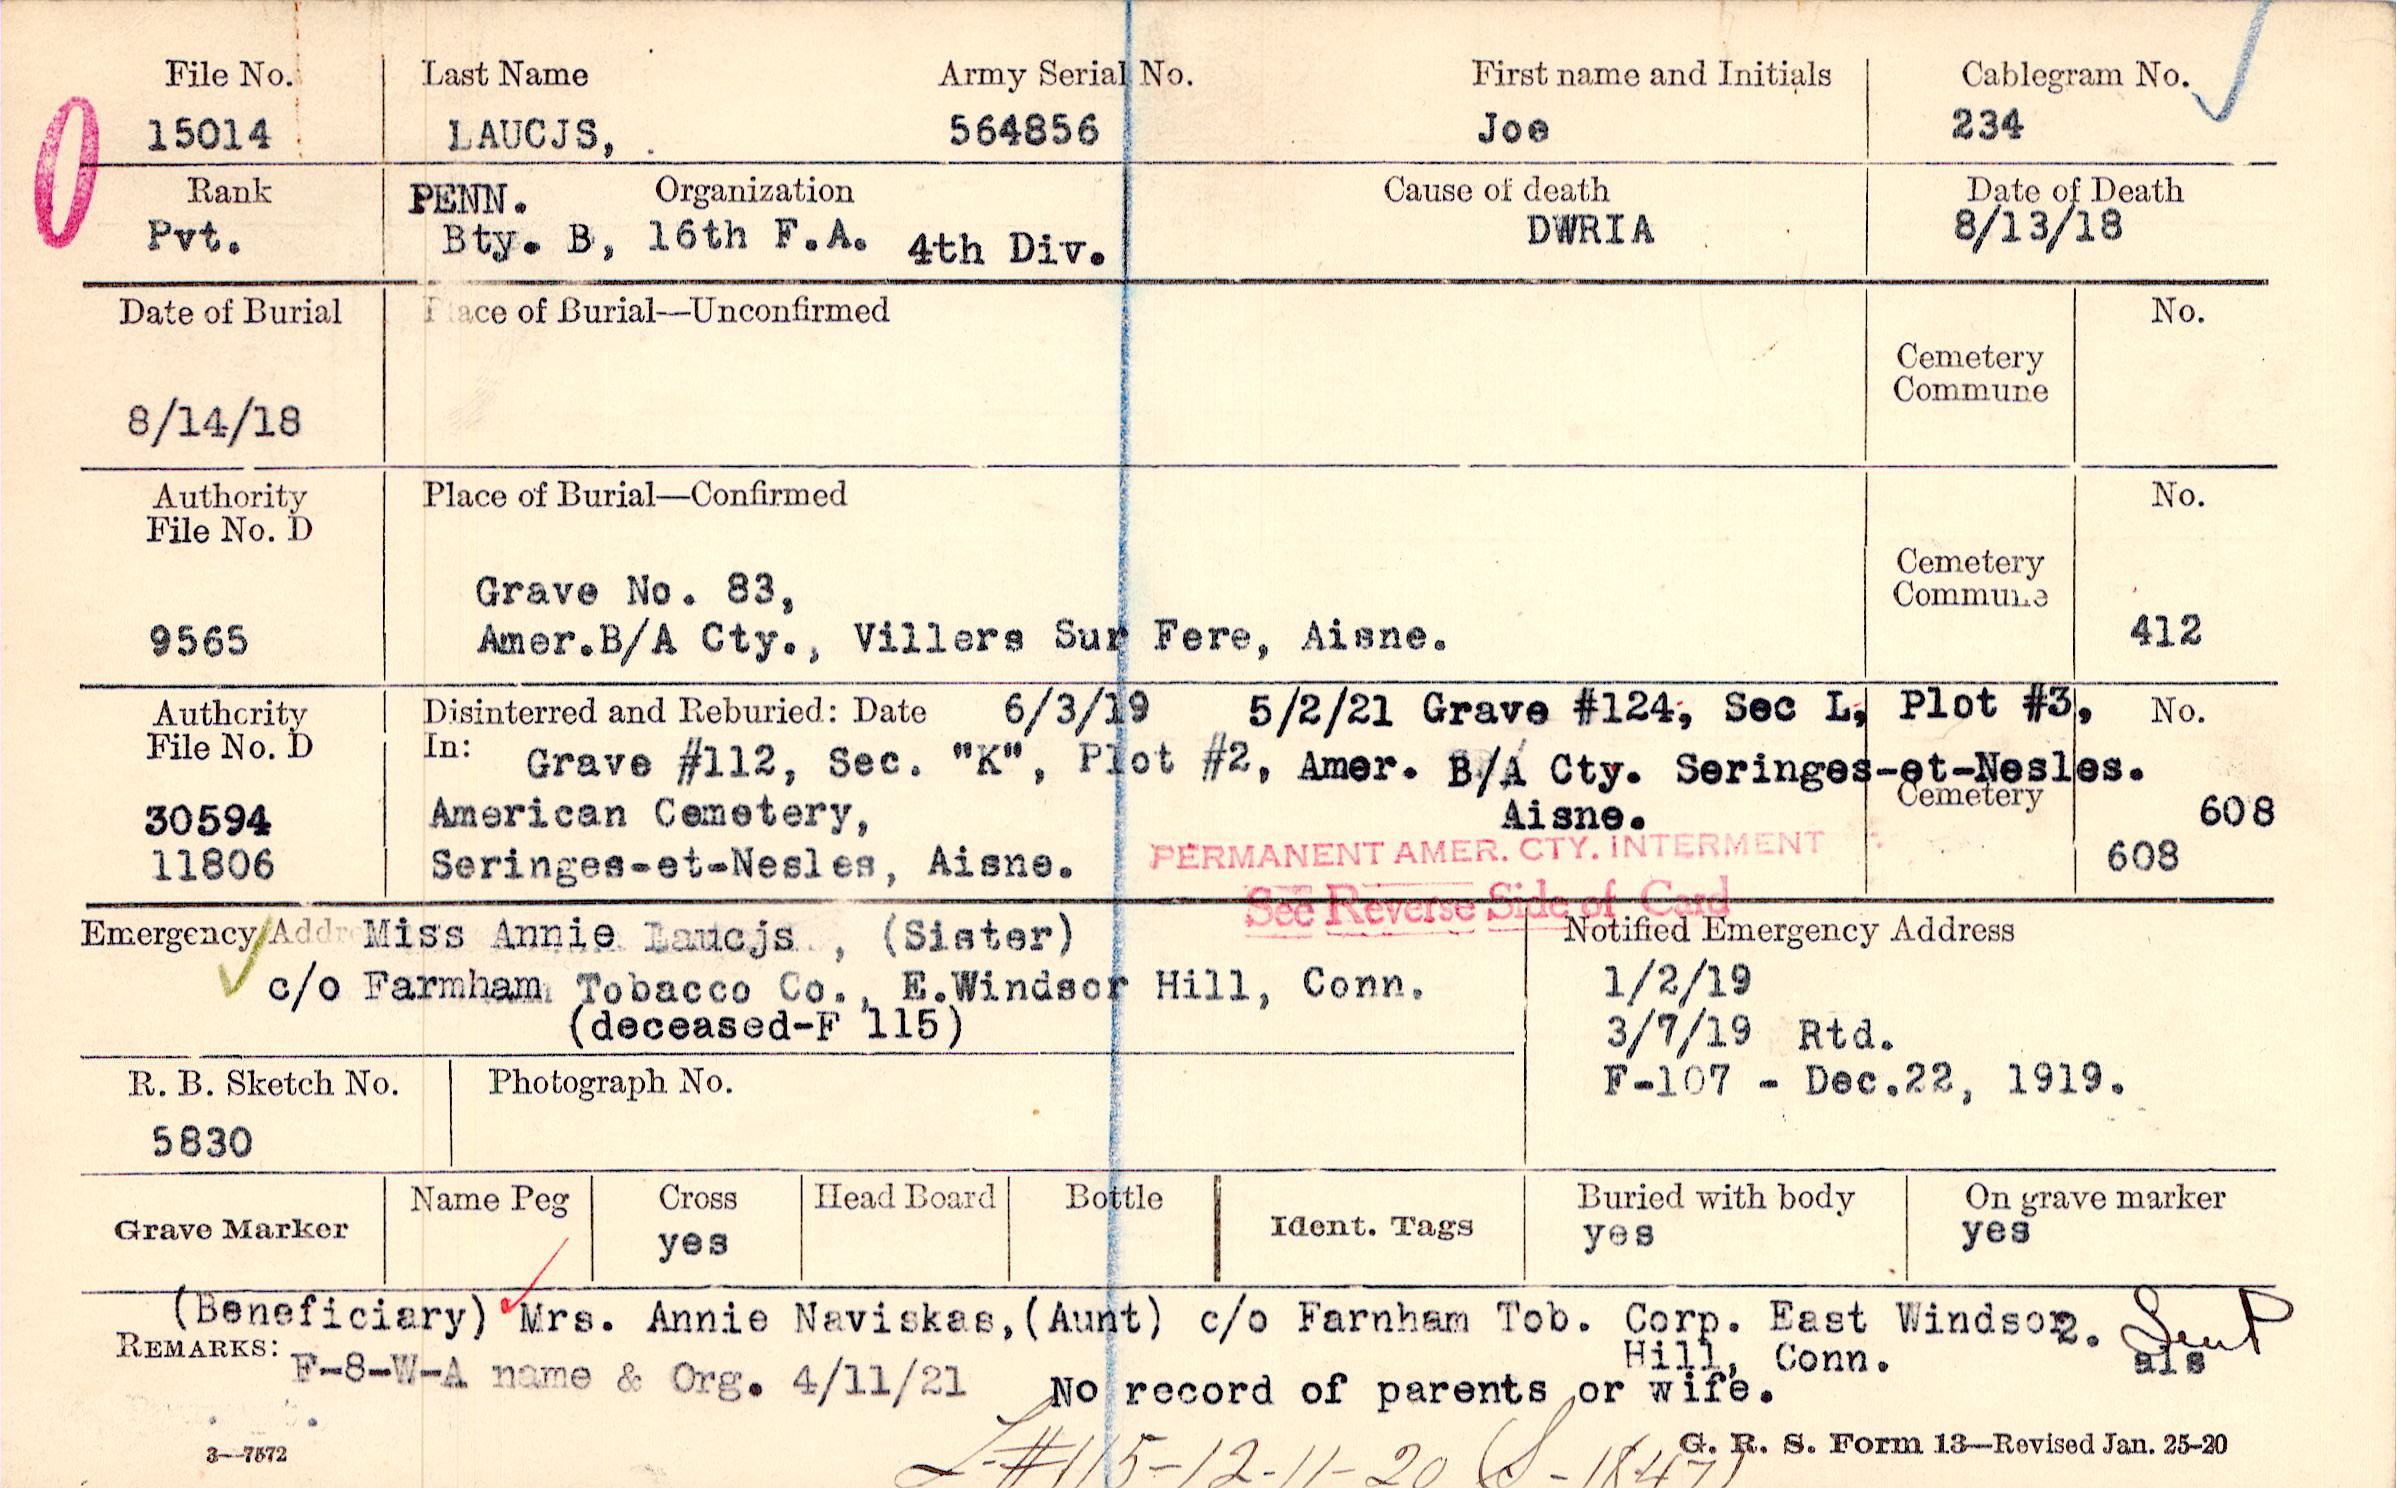 File No. Last Name Army Serial No. First name and Initials Cablegram No.
15014 LAUCJS, 564856 Joe 234
Rank PENN. Organization Cause of death Date of Death
Pvt. Bty. B, 16th F.A. 4th Div. DWRIA 8/13/18
Date of Burial Place of Burial—Unconfirmed No.
Cemetery
Commune
8/14/18
Authority Place of Burial—Confirmed No.
File No. D
Cemetery
Grave No. 83, Commune
9565 Amer.B/A Cty., Villers Sur Fere, Aisne. 412
Authority Disinterred and Reburied: Date 6/3/19 5/2/21 Grave #124, Sec L, Plot #3, No.
File No. D In: Grave #112, Sec. "K", Plot #2, Amer. B/A Cty. Seringes-et-Nesles.
Cemetery
30594 American Cemetery, Aisne. 608
11806 Seringes-et-Nesles, Aisne. PERMANENT AMER. CTY. INTERMENT 608
See Reverse Side of Card
Emergency Addre Miss Annie Laucjs , (Sister) Notified Emergency Address
c/o Farmham Tobacco Co., E.Windsor Hill, Conn. 1/2/19
(deceased-F 115) 3/7/19 Rtd.
F-107 - Dec.22, 1919.
R. B. Sketch No. Photograph No.
5830
Grave Marker Name Peg Cross Head Board Bottle Ident. Tags Buried with body On grave marker
yes yes yes
(Beneficiary) Mrs. Annie Naviskas,(Aunt) c/o Farnham Tob. Corp. East Windsor 2.
REMARKS: Hill, Conn. als
F-8-W-A name & Org. 4/11/21 No record of parents or wife.
3—7572 G. R. S. Form 13—Revised Jan. 25-20
L-#115-12-11-20 (S-1847)